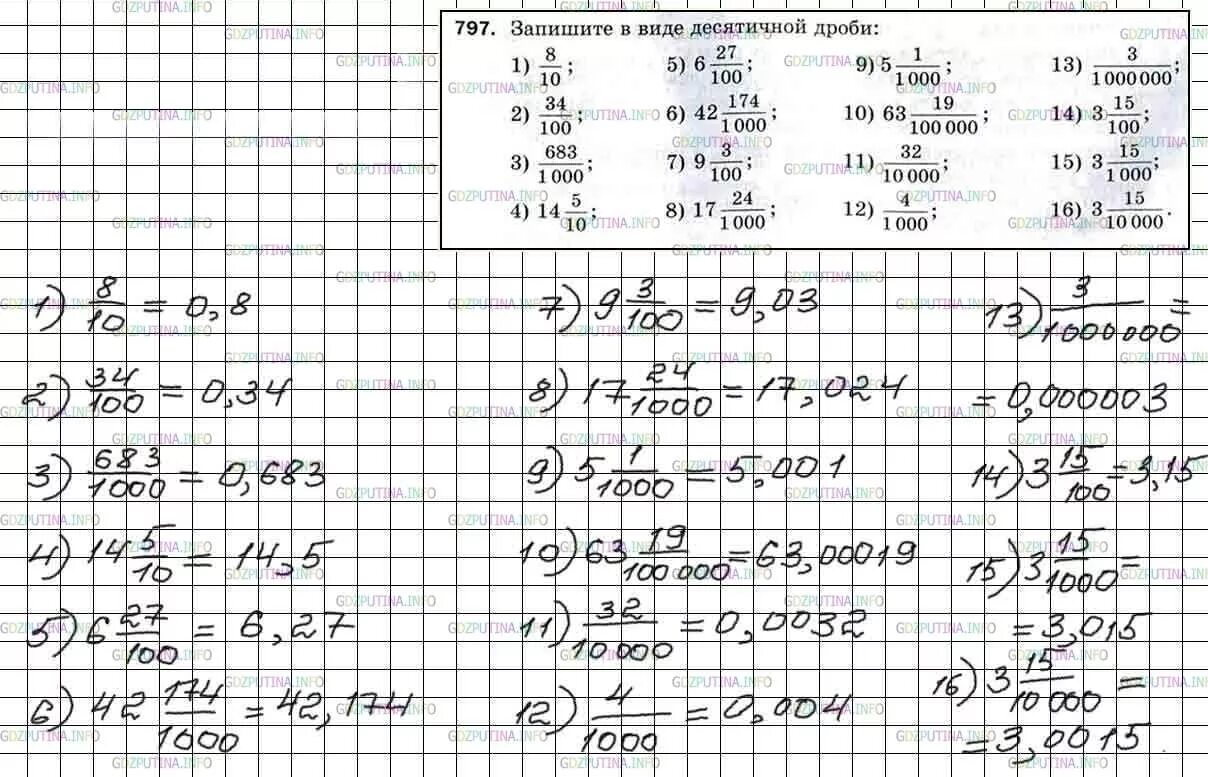 797. Запишите в виде десятичной дроби:
1) 8/10; 5) 6 27/100; 9) 5 1/1000; 13) 3/1 000 000;
2) 34/100; 6) 42 174/1000; 10) 63 19/100 000; 14) 3 15/100;
3) 683/1000; 7) 9 3/100; 11) 32/10 000; 15) 3 15/1000;
4) 14 5/10; 8) 17 24/1000; 12) 4/1000; 16) 3 15/10 000.
1) 8/10 = 0,8
2) 34/100 = 0,34
3) 683/1000 = 0,683
4) 14 5/10 = 14,5
5) 6 27/100 = 6,27
6) 42 174/1000 = 42,174
7) 9 3/100 = 9,03
8) 17 24/1000 = 17,024
9) 5 1/1000 = 5,001
10) 63 19/100 000 = 63,00019
11) 32/10 000 = 0,0032
12) 4/1000 = 0,004
13) 3/1000 000 =
= 0,000003
14) 3 15/100 = 3,15
15) 3 15/1000 =
= 3,015
16) 3 15/10 000 =
= 3,0015.
GDZPUTINA.INFO